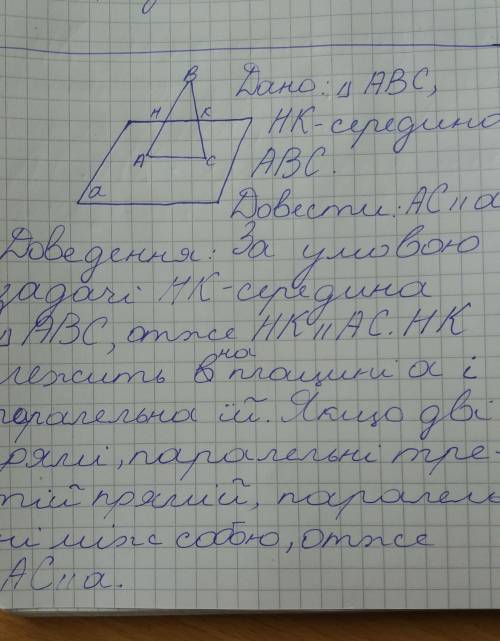 B
Дано: △ ABC,
H K
HK-середина
A C
ABC.
a
Довести: AC || a
Доведення: За умовою
задачі HK-середина
△ ABC, отже HK || AC. HK
лежить в на площині a і
паралельна їй. Якщо дві
прямі, паралельні тре-
тій прямій, паралель
ні між собою, отже
AC || a.